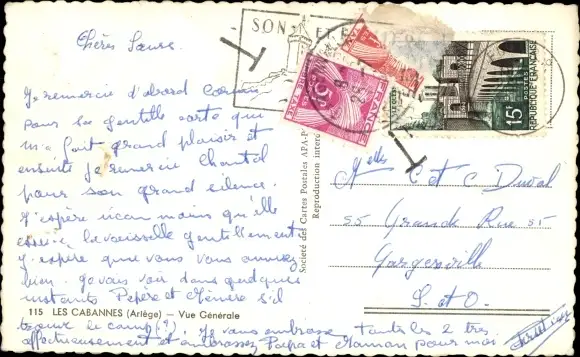 Chères Soeurs
Je remercie d'abord Corinne
pour la gentille carte qui
m'a fait grand plaisir et
ensuite je remercie Chantal
pour son grand silence.
J'espère néanmoins qu'elle
essuie la vaisselle gentillement
J'espère que vous vous amusez
bien. Je vais voir dans quelques
instants Pépère et Mémère s'il
115 LES CABANNES (Ariège) — Vue Générale
le camp (?). Je vous embrasse toutes les 2 très
affectueusement et embrassez Papa et Maman pour moi
Société des Cartes Postales APA-P
Reproduction interd
SON ET
T
50
FRANCE
15F
POSTES
REPUBLIQUE FRANÇAISE
T
Melles C et C Duval
55 Grande Rue 55
Gargenville
S. et O.